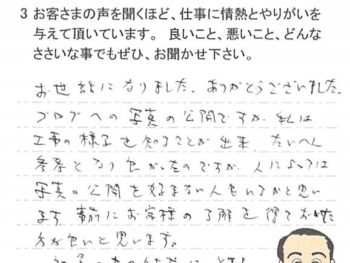 3 お客さまの声を聞くほど、仕事に情熱とやりがいを
与えて頂いています。 良いこと、悪いこと、どんな
ささいな事でもぜひ、お聞かせ下さい。
お世話になりました。ありがとうございました。
ブログへの写真の公開ですが、私は
工事の様子を知ることが出来、たいへん
参考となり良かったのですが、人によっては
写真の公開を好まない人もいるかと思い
ます。事前にお客様の了解を得ておいた
方が良いと思います。